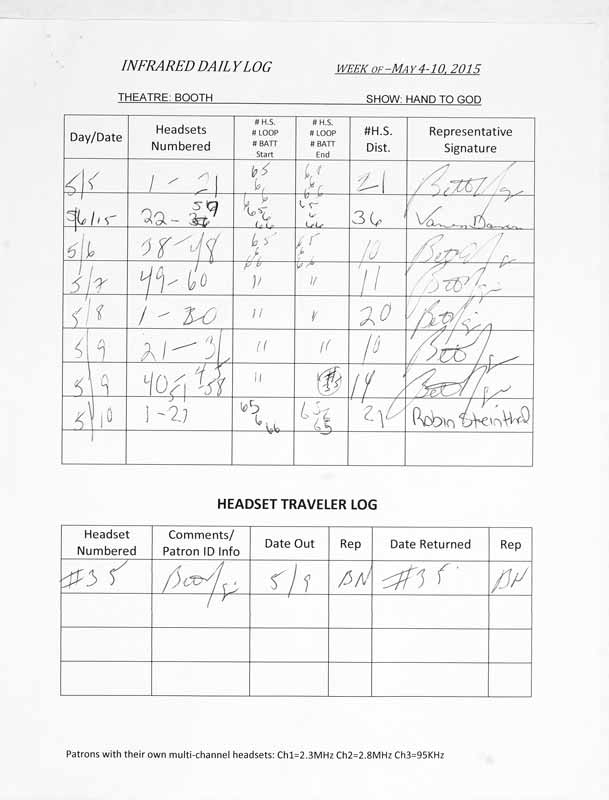 INFRARED DAILY LOG WEEK OF –MAY 4-10, 2015
THEATRE: BOOTH SHOW: HAND TO GOD
Day/Date Headsets Numbered # H.S. # LOOP # BATT Start # H.S. # LOOP # BATT End #H.S. Dist. Representative Signature
5/5 1 - 21 65 6 66 21
5/6/15 22 - 65 6 66 65 6 66 36
5/6 38 - 48 65 6 66 65 6 66 10
5/7 49 - 60 " " 11
5/8 1 - 20 " " 20
5/9 21 - 31 " " 10
5/9 40 - " #35 14
5/10 1-21 65 6 66 65 6 65 21 Robin
HEADSET TRAVELER LOG
Headset Numbered Comments/ Patron ID Info Date Out Rep Date Returned Rep
#35 5/9 BN #35 BN
Patrons with their own multi-channel headsets: Ch1=2.3MHz Ch2=2.8MHz Ch3=95KHz